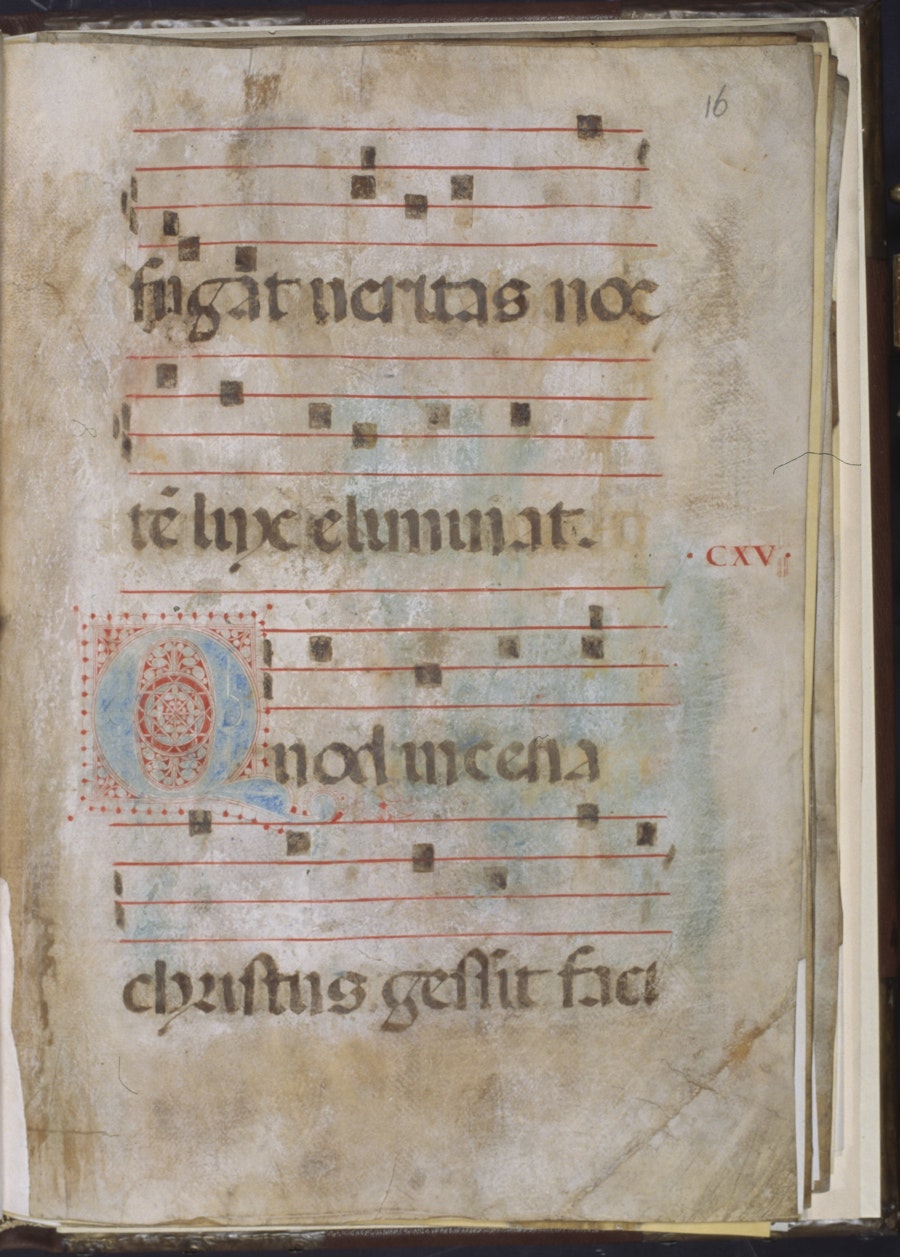 16
fugat ueritas noc
tē lux eluminat.
· CXV ·
Quod in cena
christus gessit faci